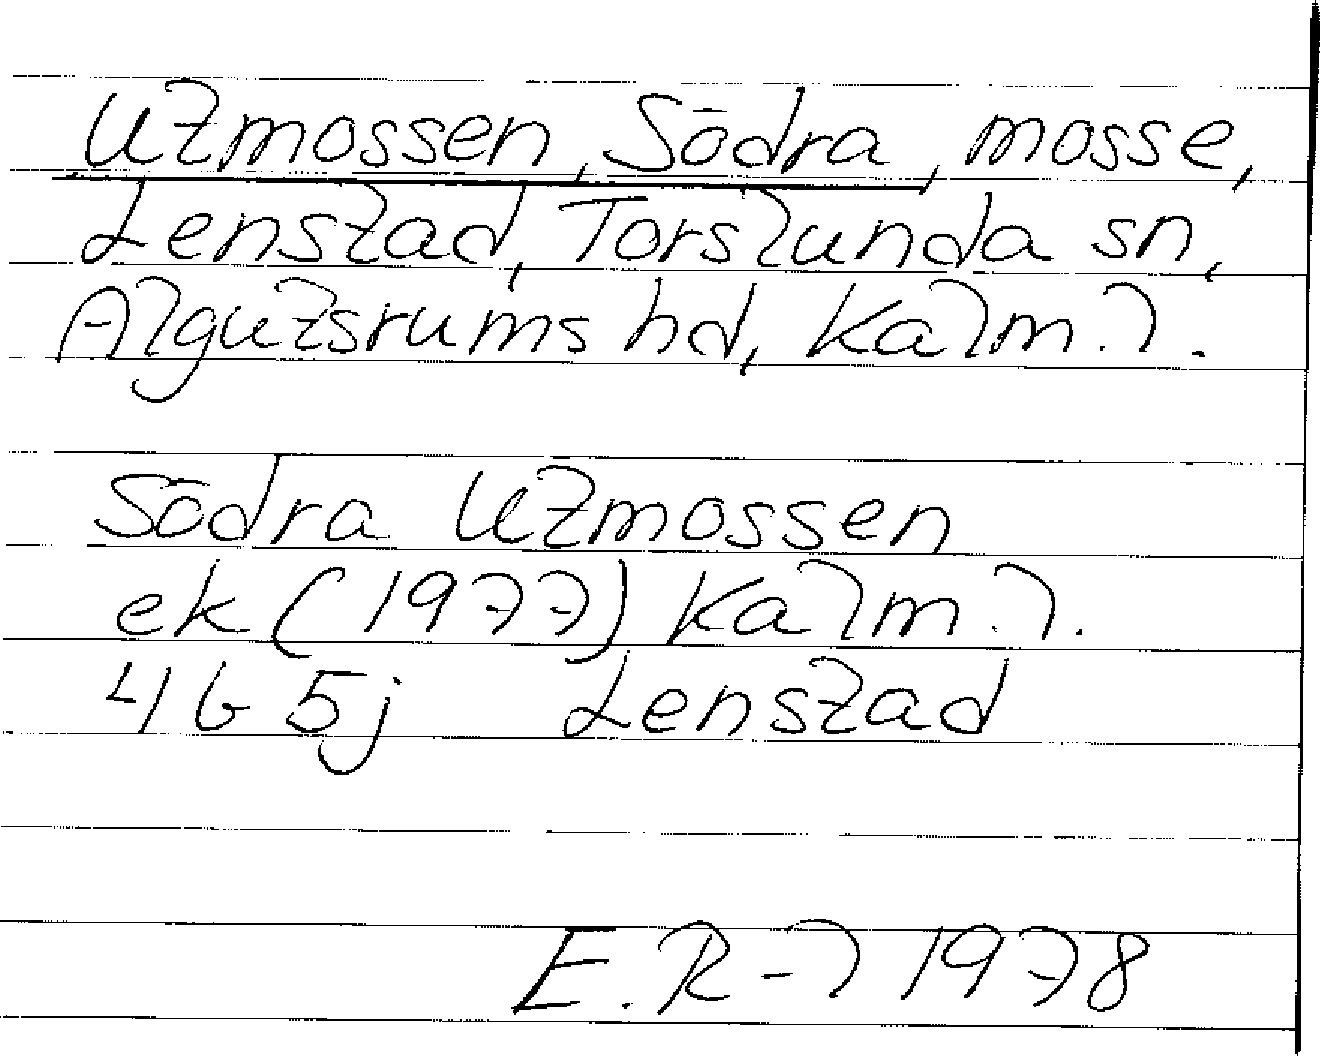 Utmossen, Södra, mosse,
Lenstad, Torslunda sn,
Algutsrums hd, Kalm. l.
Södra Utmossen
ek (1977) Kalm. l.
4G 5j Lenstad
E. R-l 1978